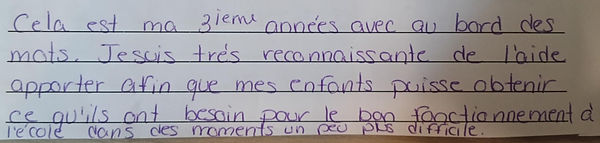 Cela est ma 3ieme années avec au bord des
mots. Jesuis trés reconnaissante de l'aide
apporter afin que mes enfants puisse obtenir
ce qu'ils ont besoin pour le bon fonctionnement à
l'école dans des moments un peu plus difficile.